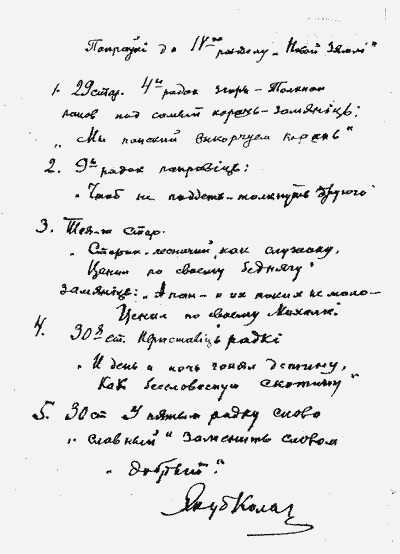 Папраўкі да IV-го разделу „Новай Зямлі“
1. 29 стар. 4-ы радок згары – Толкнем
панов под самый корень – замяніць:
„Мы панский выкорчуем корень“
2. 9-ы радок паправіць:
„Чтоб не поддеть – толкнуть другого
3. Тая-ж стар.
„Старик-лесничий, как служаку,
Ценил по своему беднягу“
замяніць: „А пан – и их таких не мало –
Ценил по своему Михала.
4. 30-я ст. радкі
„И день и ночь гонял детину,
Как бессловесную скотину“
5. 30 ст. У пятым радку слово
„славный“ заменить словом
„добрый“.
Якуб Колас